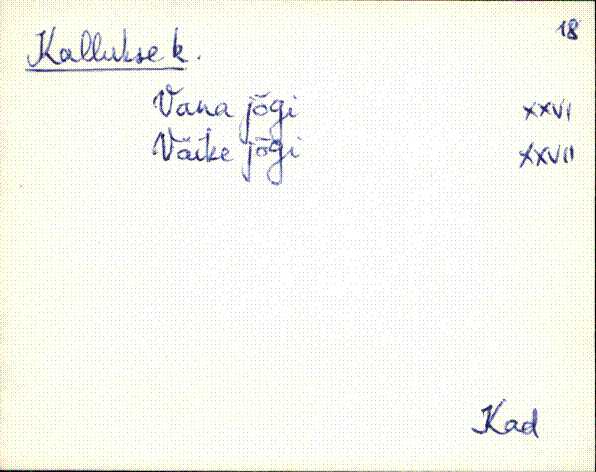 18
Kallukse k.
Vana jõgi XXVI
Väike jõgi XXVII
Kad